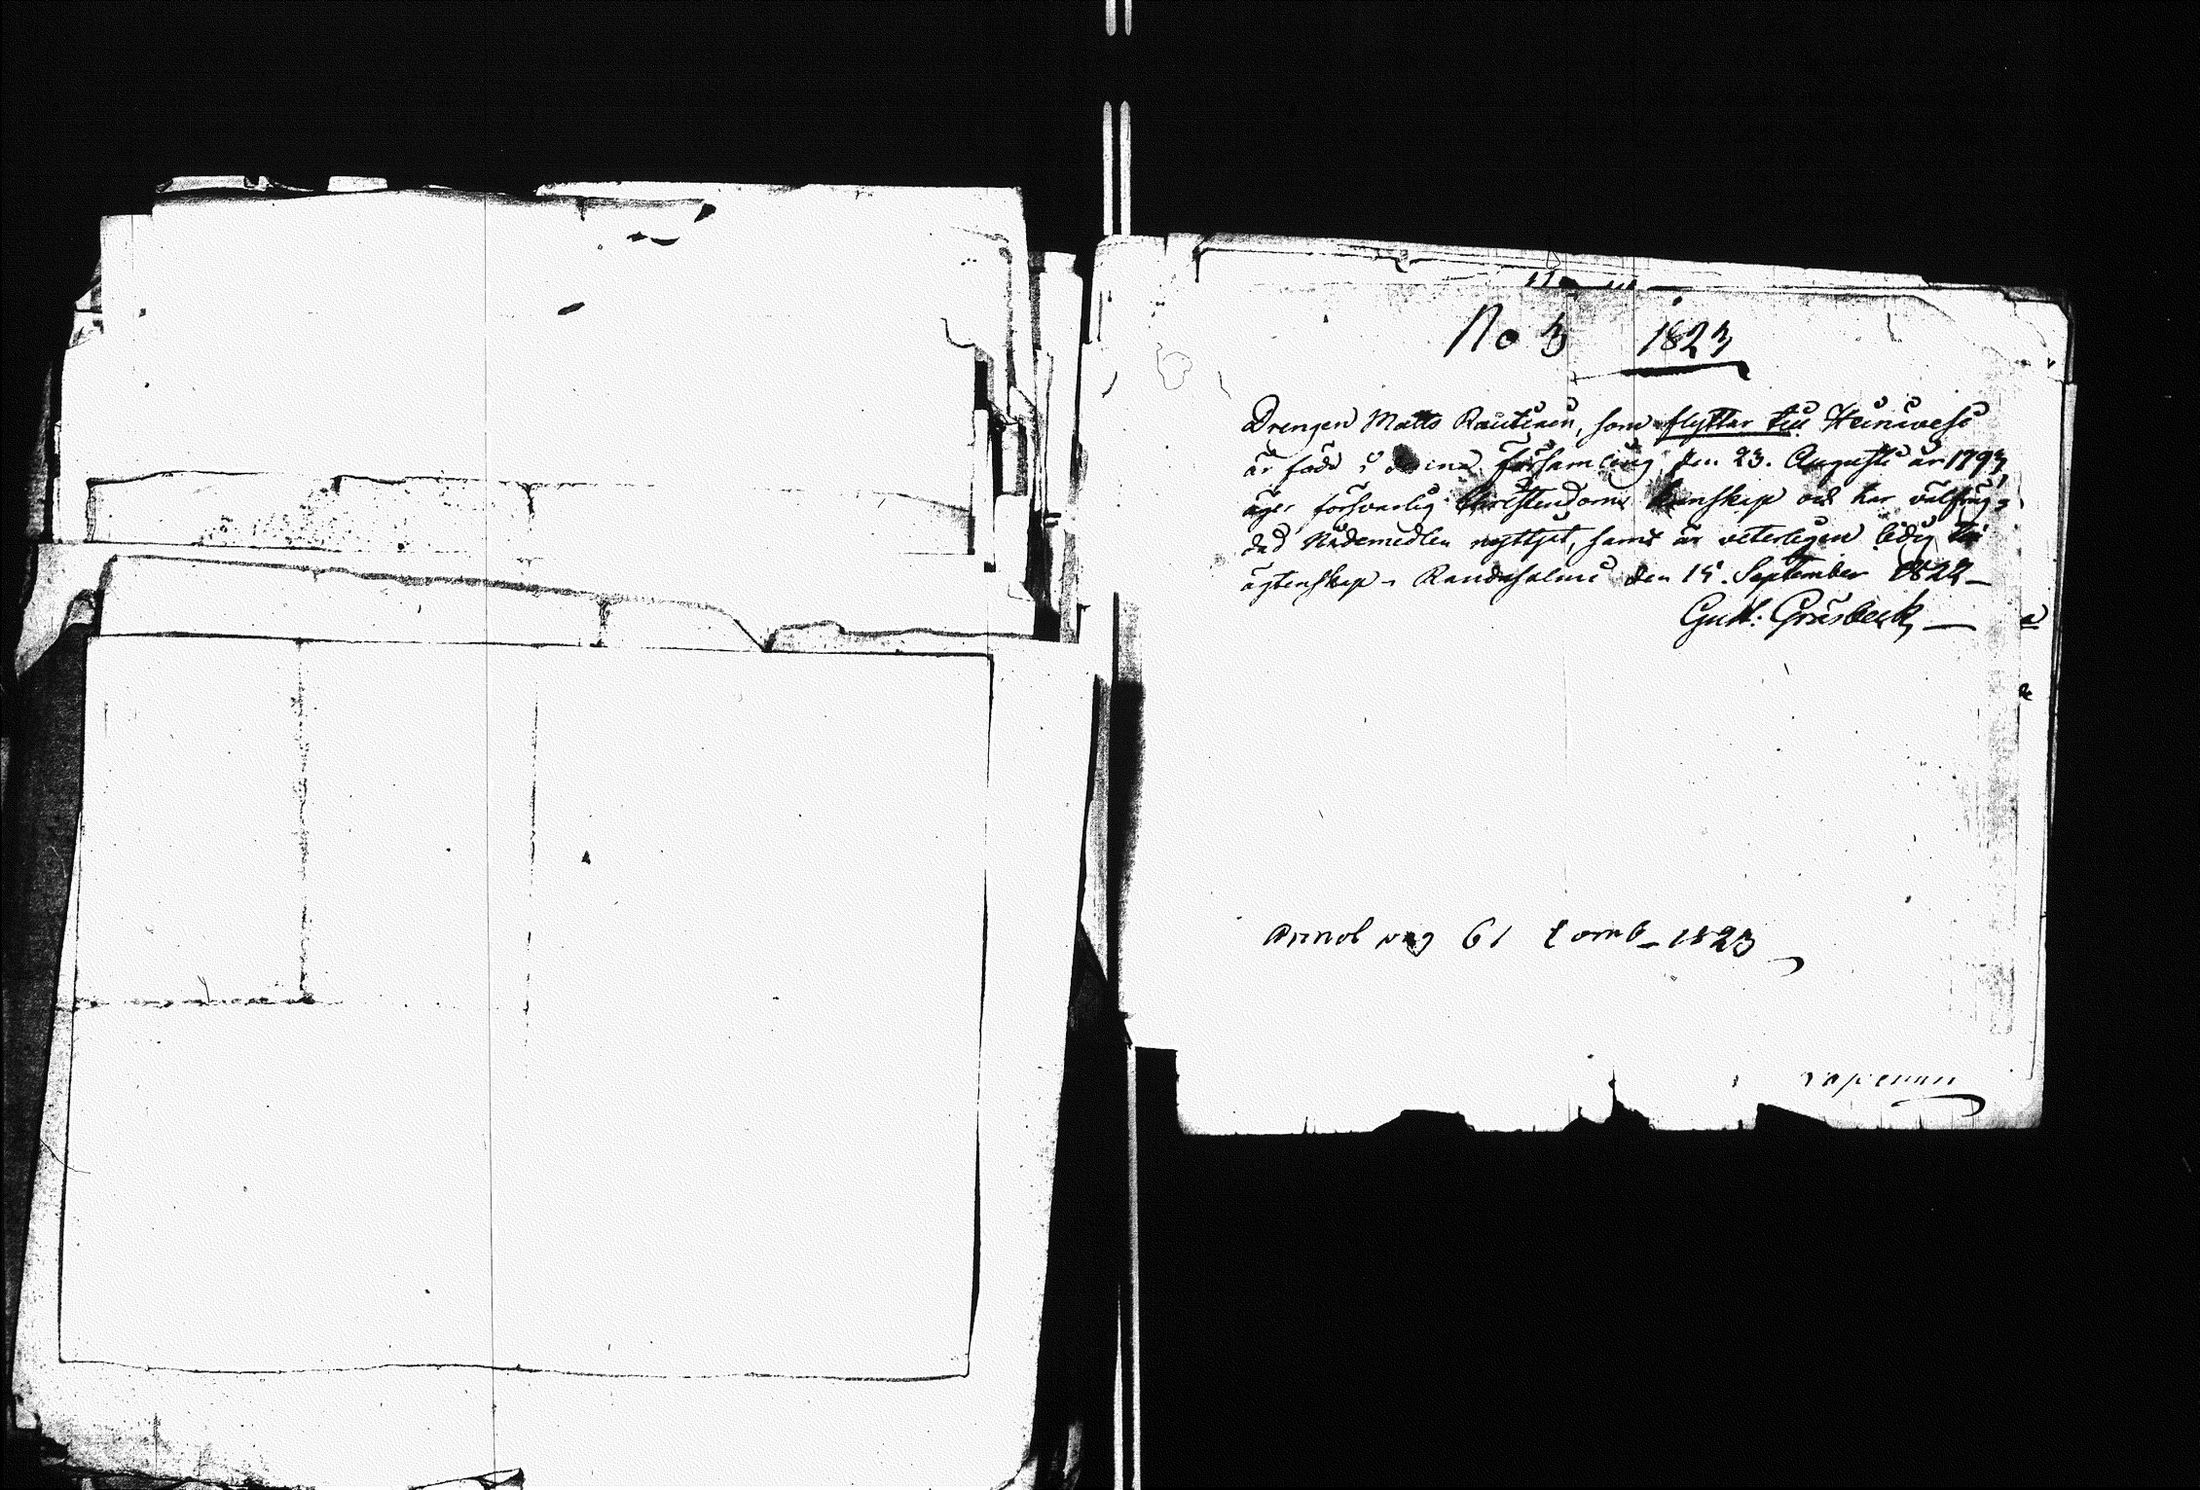 No 3 1823
Drengen Matts Rautiain, som flyttar till Heinivesi
är född i denna församling den 23. Augusti år 1793,
äger försvarlig Christendoms kunskap och har välförig-
dad Nådemedlen nyttjat, samt är veterligen ledig till
ägtenskap. Randasalmi den 15. September 1822
Gust: Gräsbeck
Annot pag 61 Comb 1823